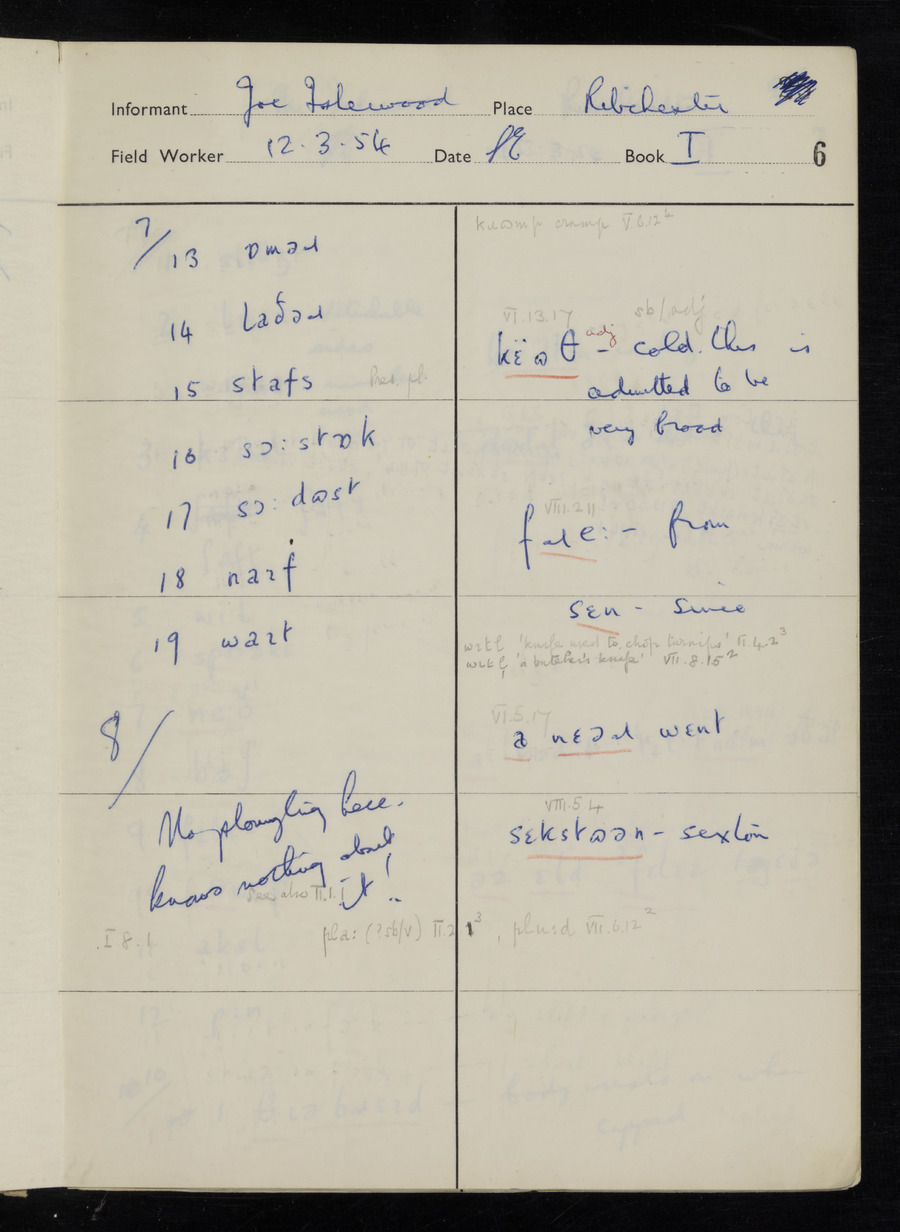 Informant Joe Place Ribchester
Field Worker 12.3.54 Date Book I 6
7/
13 ɒməɹ
14 laðəɹ
15 stafs Pres. pl.
16 sɔ:stɒk
17 sɔ:dʊst
18 naɪf
19 waɪt
8/
No ploughing here.
knows nothing about
it!
see also II.1.1
I 8.1 pla: (? sb/v) II.2.1³, plu:d VII.6.12²
cramp V.6.12⁴
VI.13.17 sb/adj
adj
kɛ̈ʊθ – cold. This is
admitted to be
very broad
VIII.2.11
fɹe:– from
sɛn – since
'knife used to chop turnips' II.4.2³
'a butcher's knife' VII.8.15²
VI.5.17
ə nɛəɹ wɛnt
VIII.5.4
sɛkstʊən – sexton